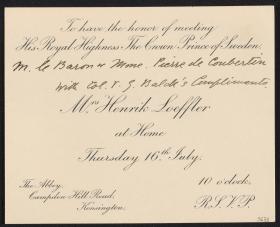 To have the honor of meeting
His Royal Highness The Crown Prince of Sweden.
M. le Baron & Mme. Pierre de Coubertin
with Col. V. G. Balck's Compliments
Mrs Henrik Loeffler
at Home
Thursday 16th July.
The Abbey,
Campden Hill Road,
Kensington.
10 o'clock.
R.S.V.P.